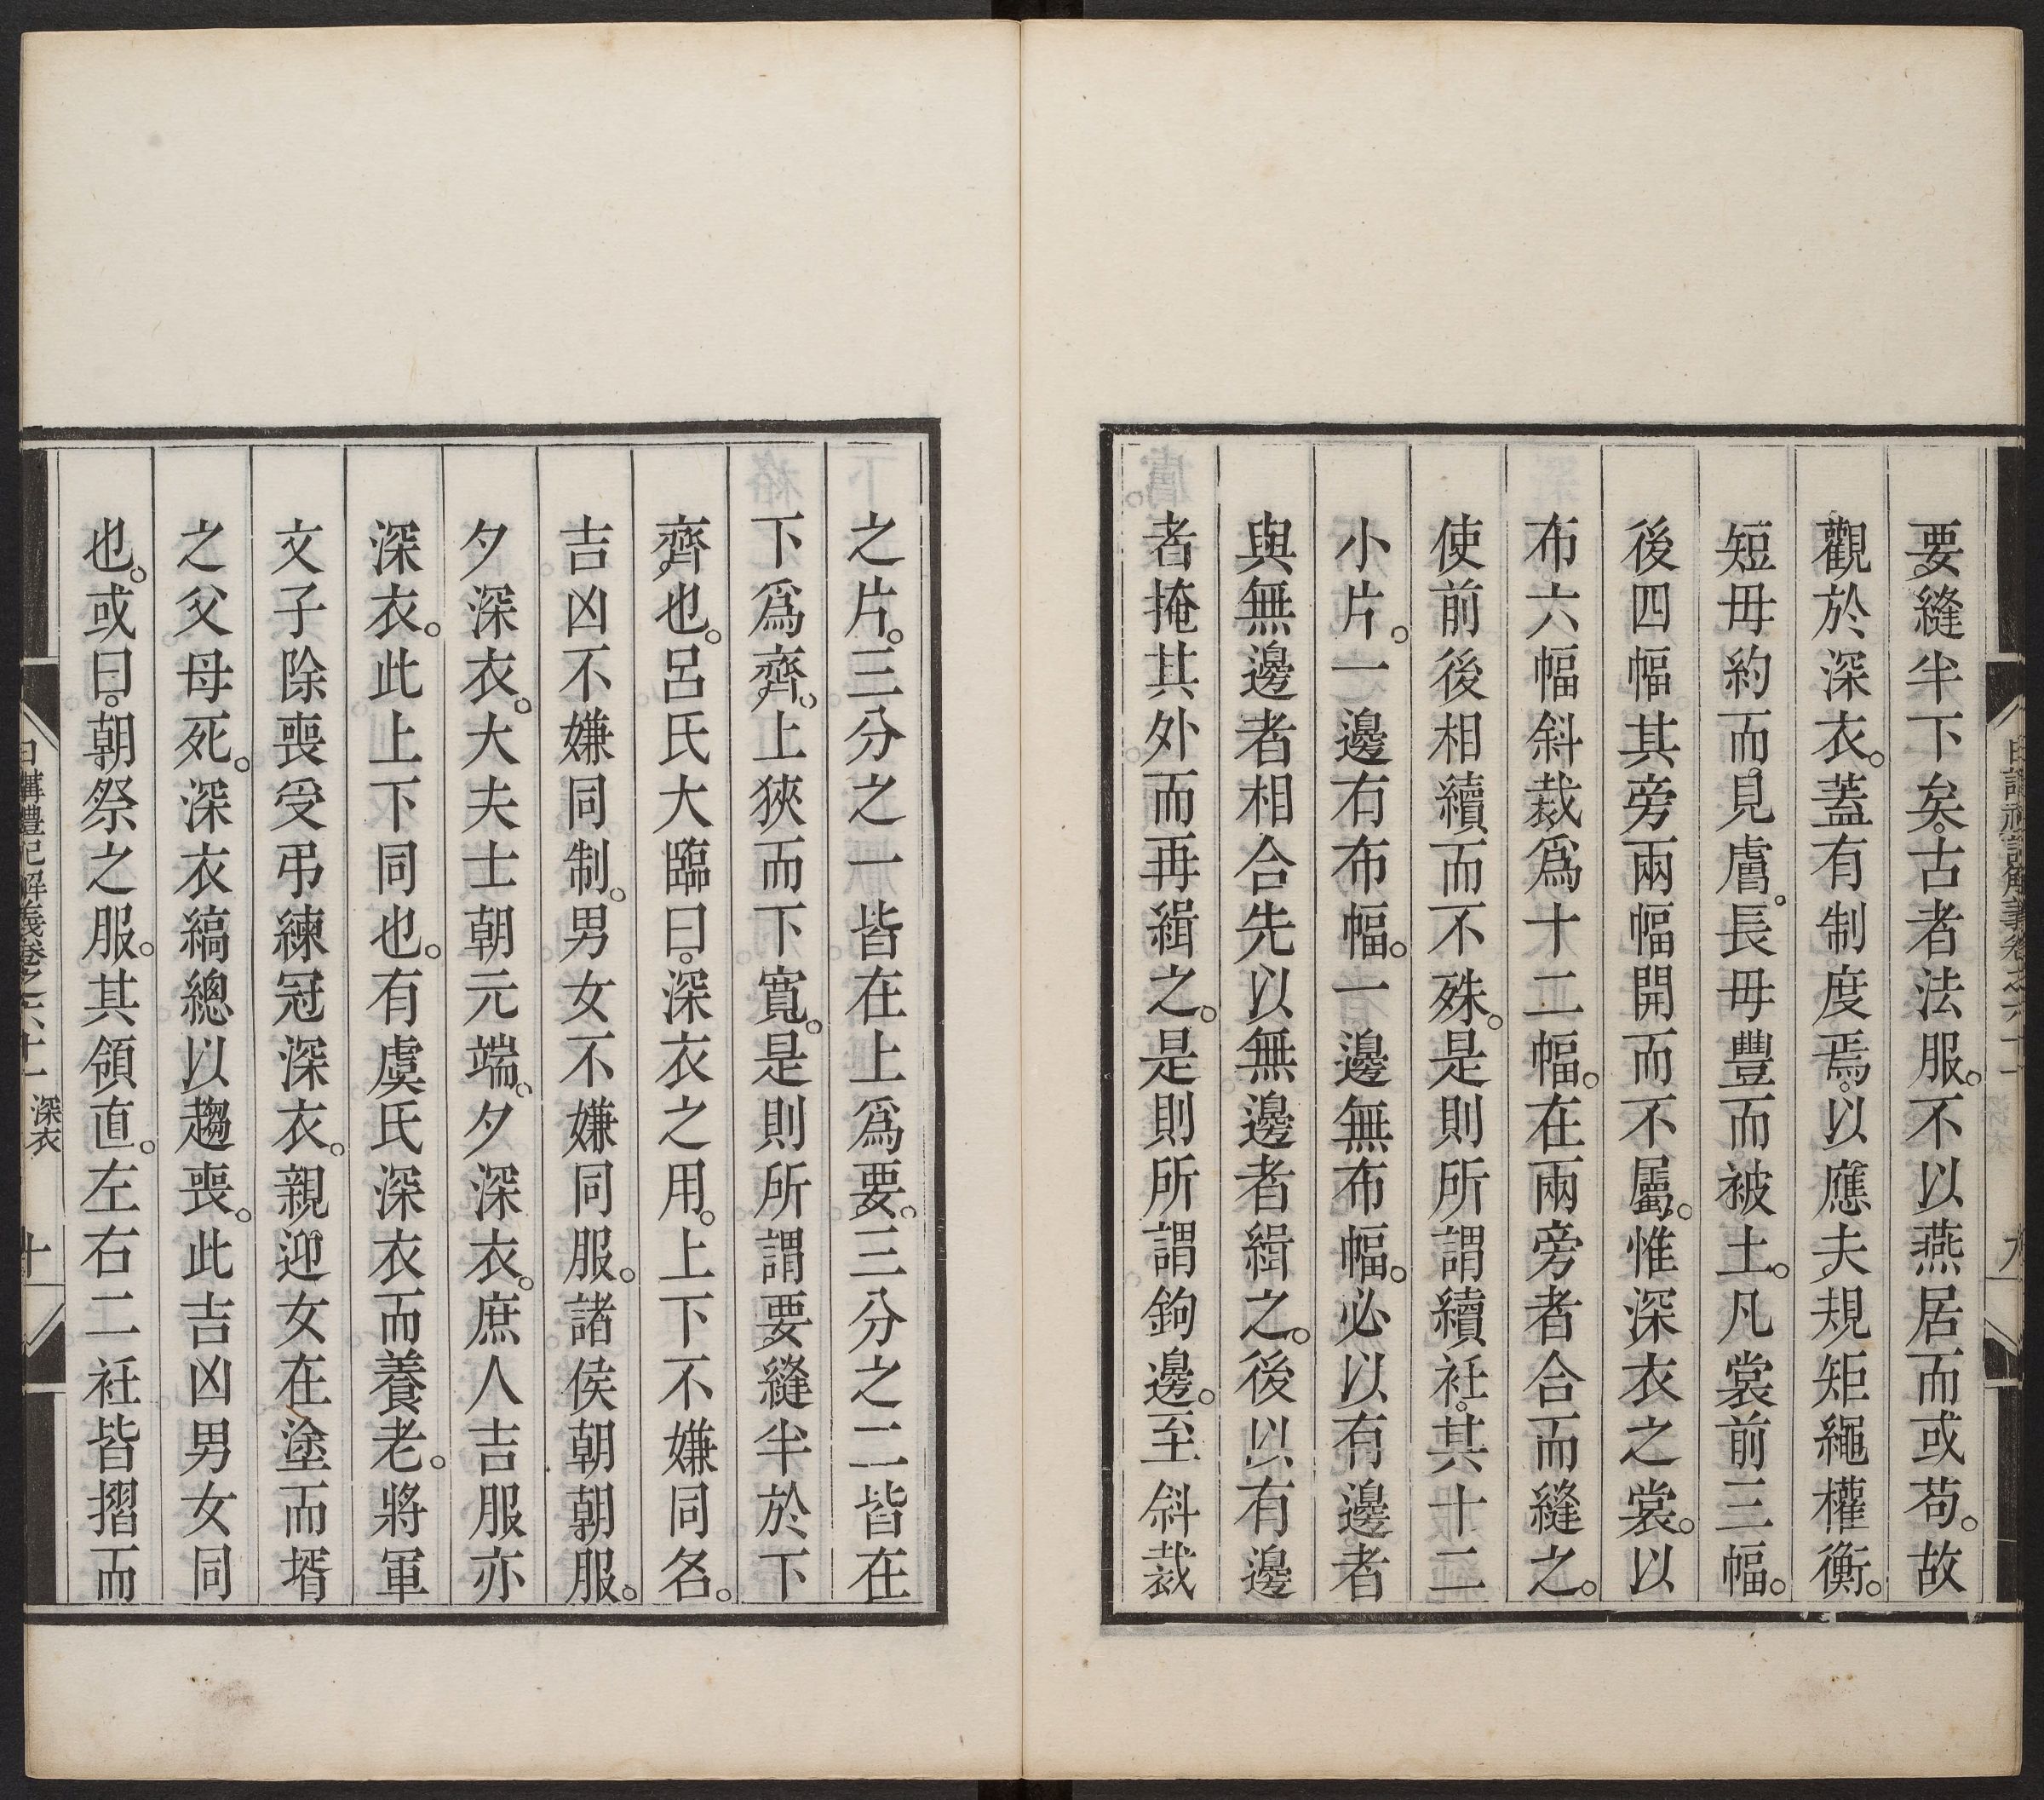 要縫半下矣。古者法服。不以燕居而或苟。故
觀於深衣。蓋有制度焉。以應夫規矩繩權衡。
短毋約而見膚。長毋豐而被土。凡裳前三幅。
後四幅其旁兩幅開而不屬。惟深衣之裳。以
布六幅斜裁爲十二幅。在兩旁者合而縫之。
使前後相續而不殊。是則所謂續衽。其十二
小片。一邊有布幅。一邊無布幅。必以有邊者
與無邊者相合先以無邊者緝之。後以有邊
者掩其外而再緝之。是則所謂鉤邊。至斜裁
之片。三分之一皆在上爲要。三分之二皆在
下爲齊。上狹而下寬。是則所謂要縫半於下
齊也。呂氏大臨曰。深衣之用。上下不嫌同名。
吉凶不嫌同制。男女不嫌同服。諸侯朝朝服。
夕深衣。大夫士朝元端。夕深衣。庶人吉服亦
深衣。此上下同也。有虞氏深衣而養老。將軍
文子除喪受弔練冠深衣。親迎女在塗而壻
之父母死。深衣縞總以趨喪。此吉凶男女同
也。或曰。朝祭之服。其領直。左右二衽皆摺而
日講禮記解義卷之六十一 深衣 十